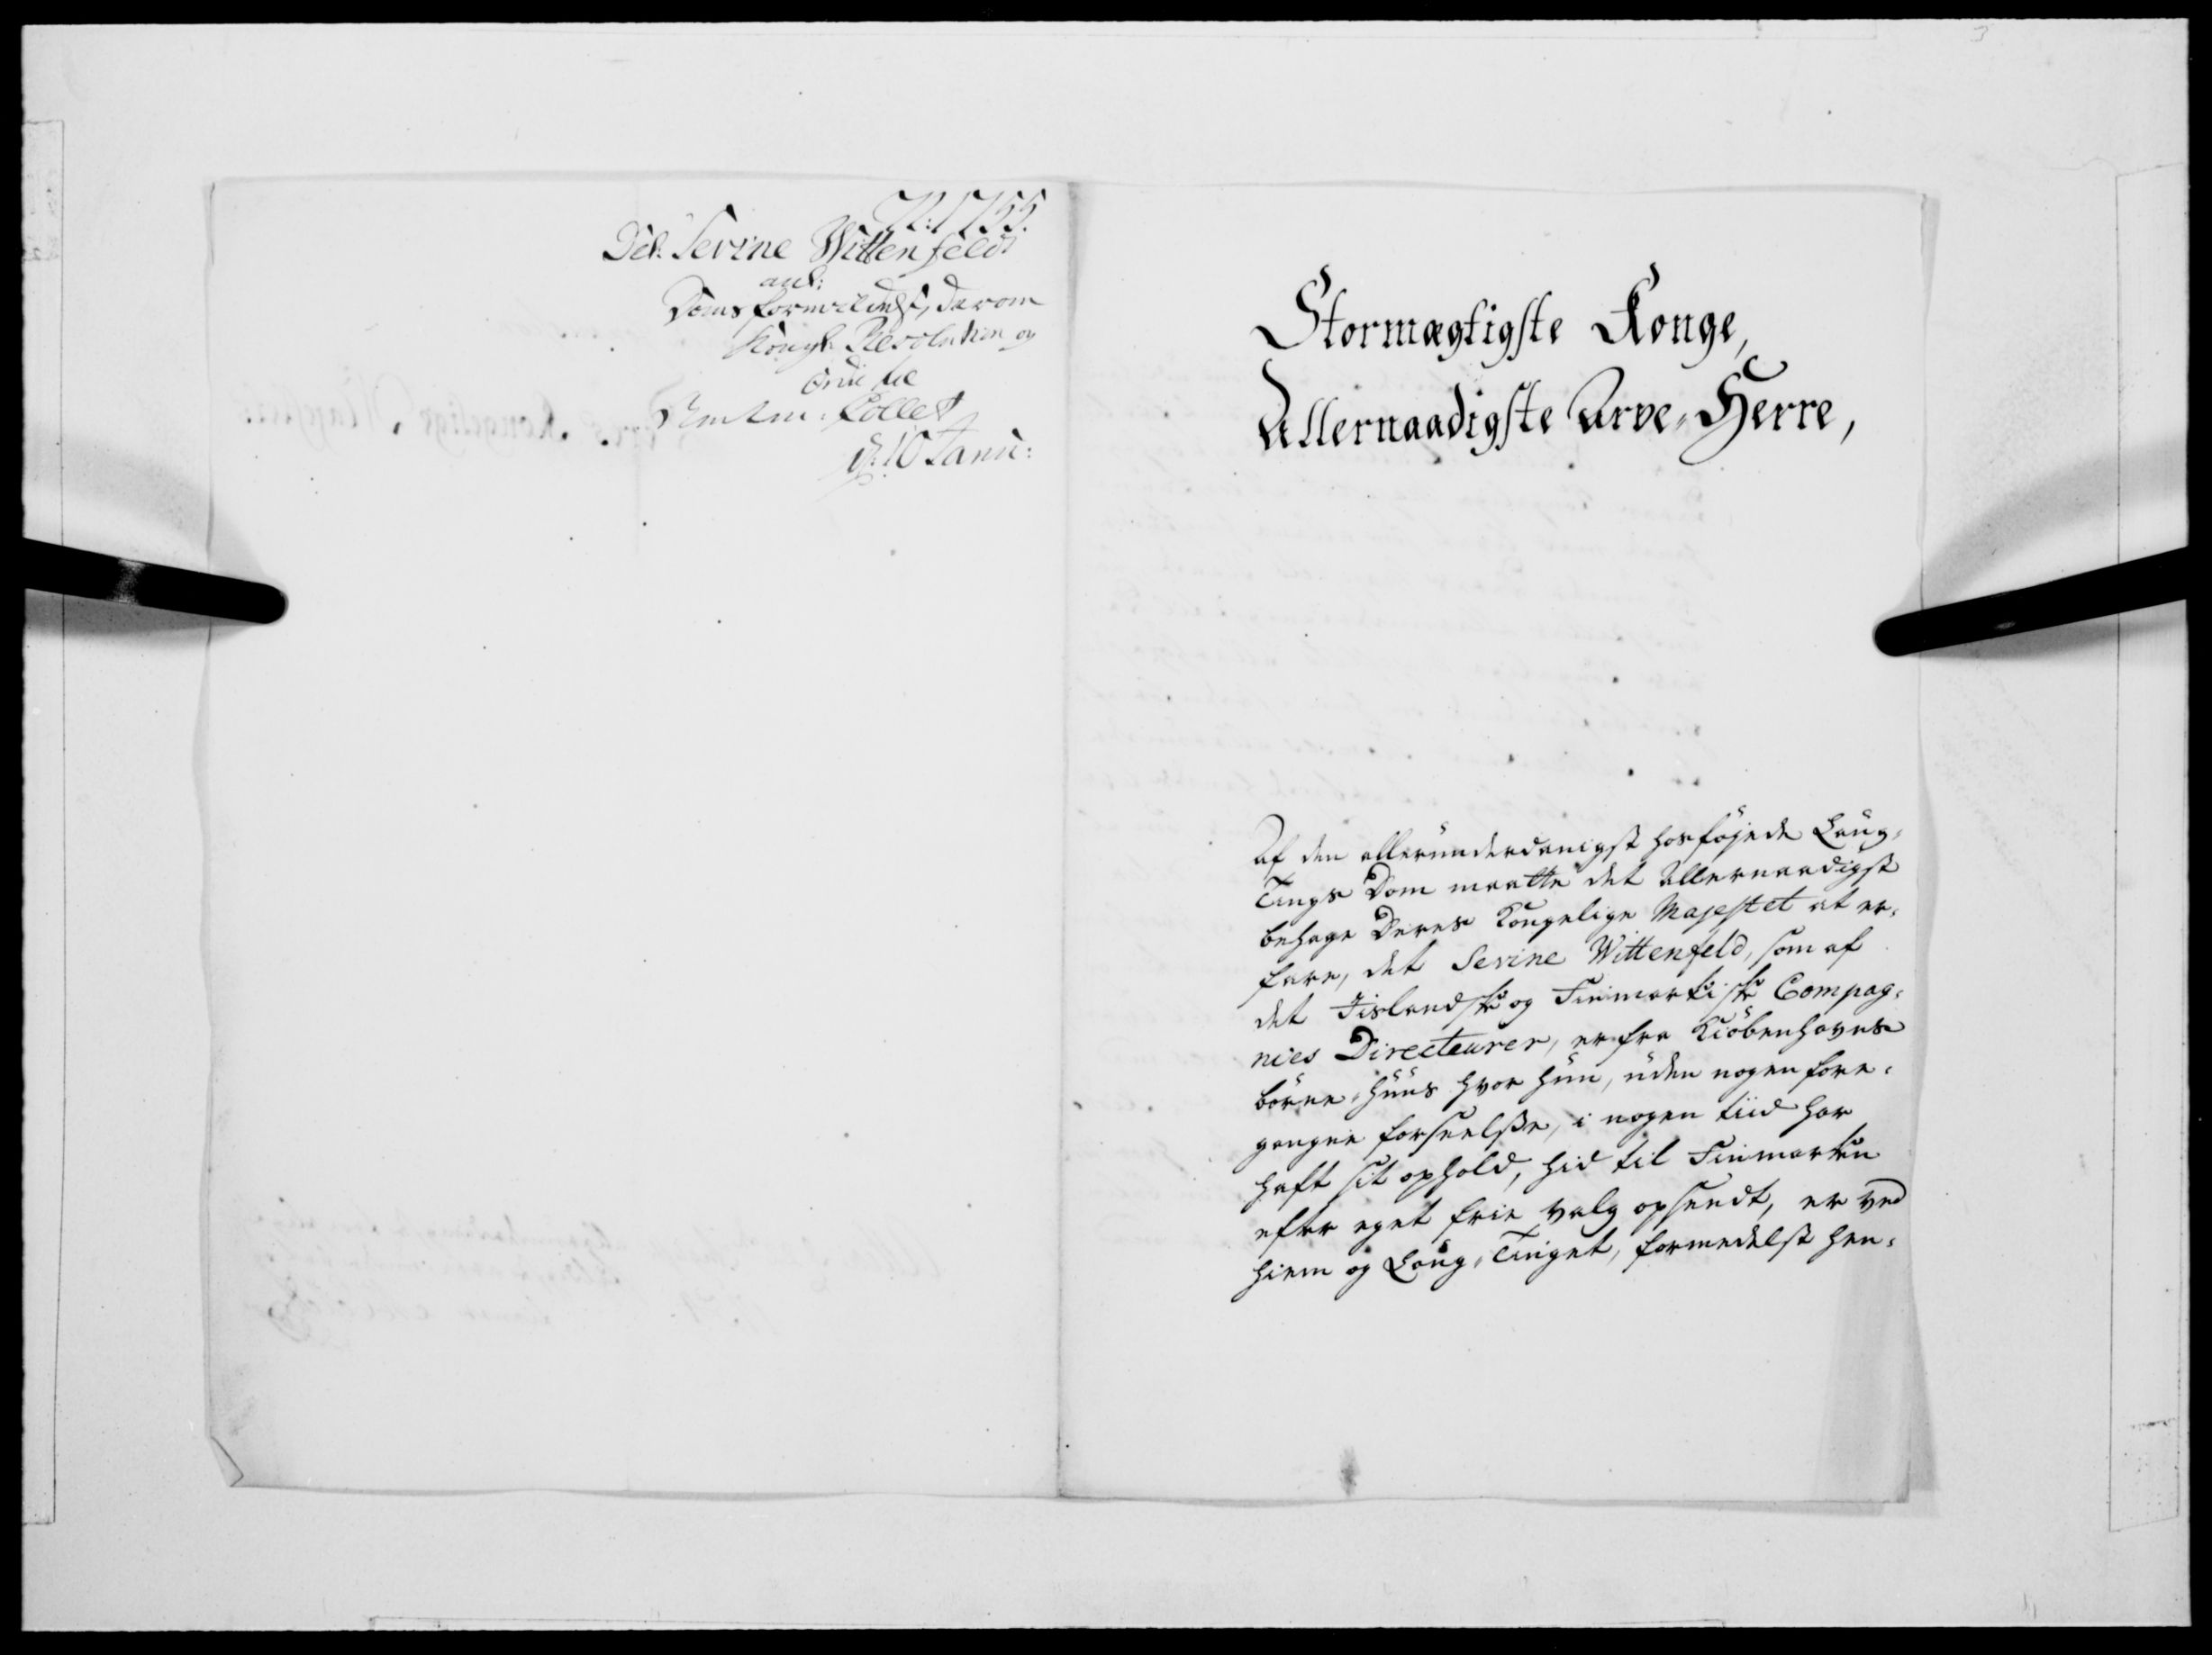 1755.
Sevine Wittenfeldt
anl:
Doms formildelse, derom
Kongl. Resolution og
Ordre til
Amtm: Collet
d: 10 Janu:
Stormægtigste Konge,
Allernaadigste Arve-Herre,
Af den allerunderdanigst hosføjede Laug-
Tings Dom maatte det Allernaadigst
behage Deres Kongelige Majestet at er-
fare, det Sevine Wittenfeld, som af
det Jislandske og Finmarkiske Compag-
nies Directeurer, er fra Kiöbenhavns
börne-Huus hvor hun, uden nogen fore-
gangen forseelse, i nogen tiid har
haft sit ophold, hid til Finmarken
efter eget frie valg opsendt, er ved
Hiem og Laug-Tinget, formedelst hen-